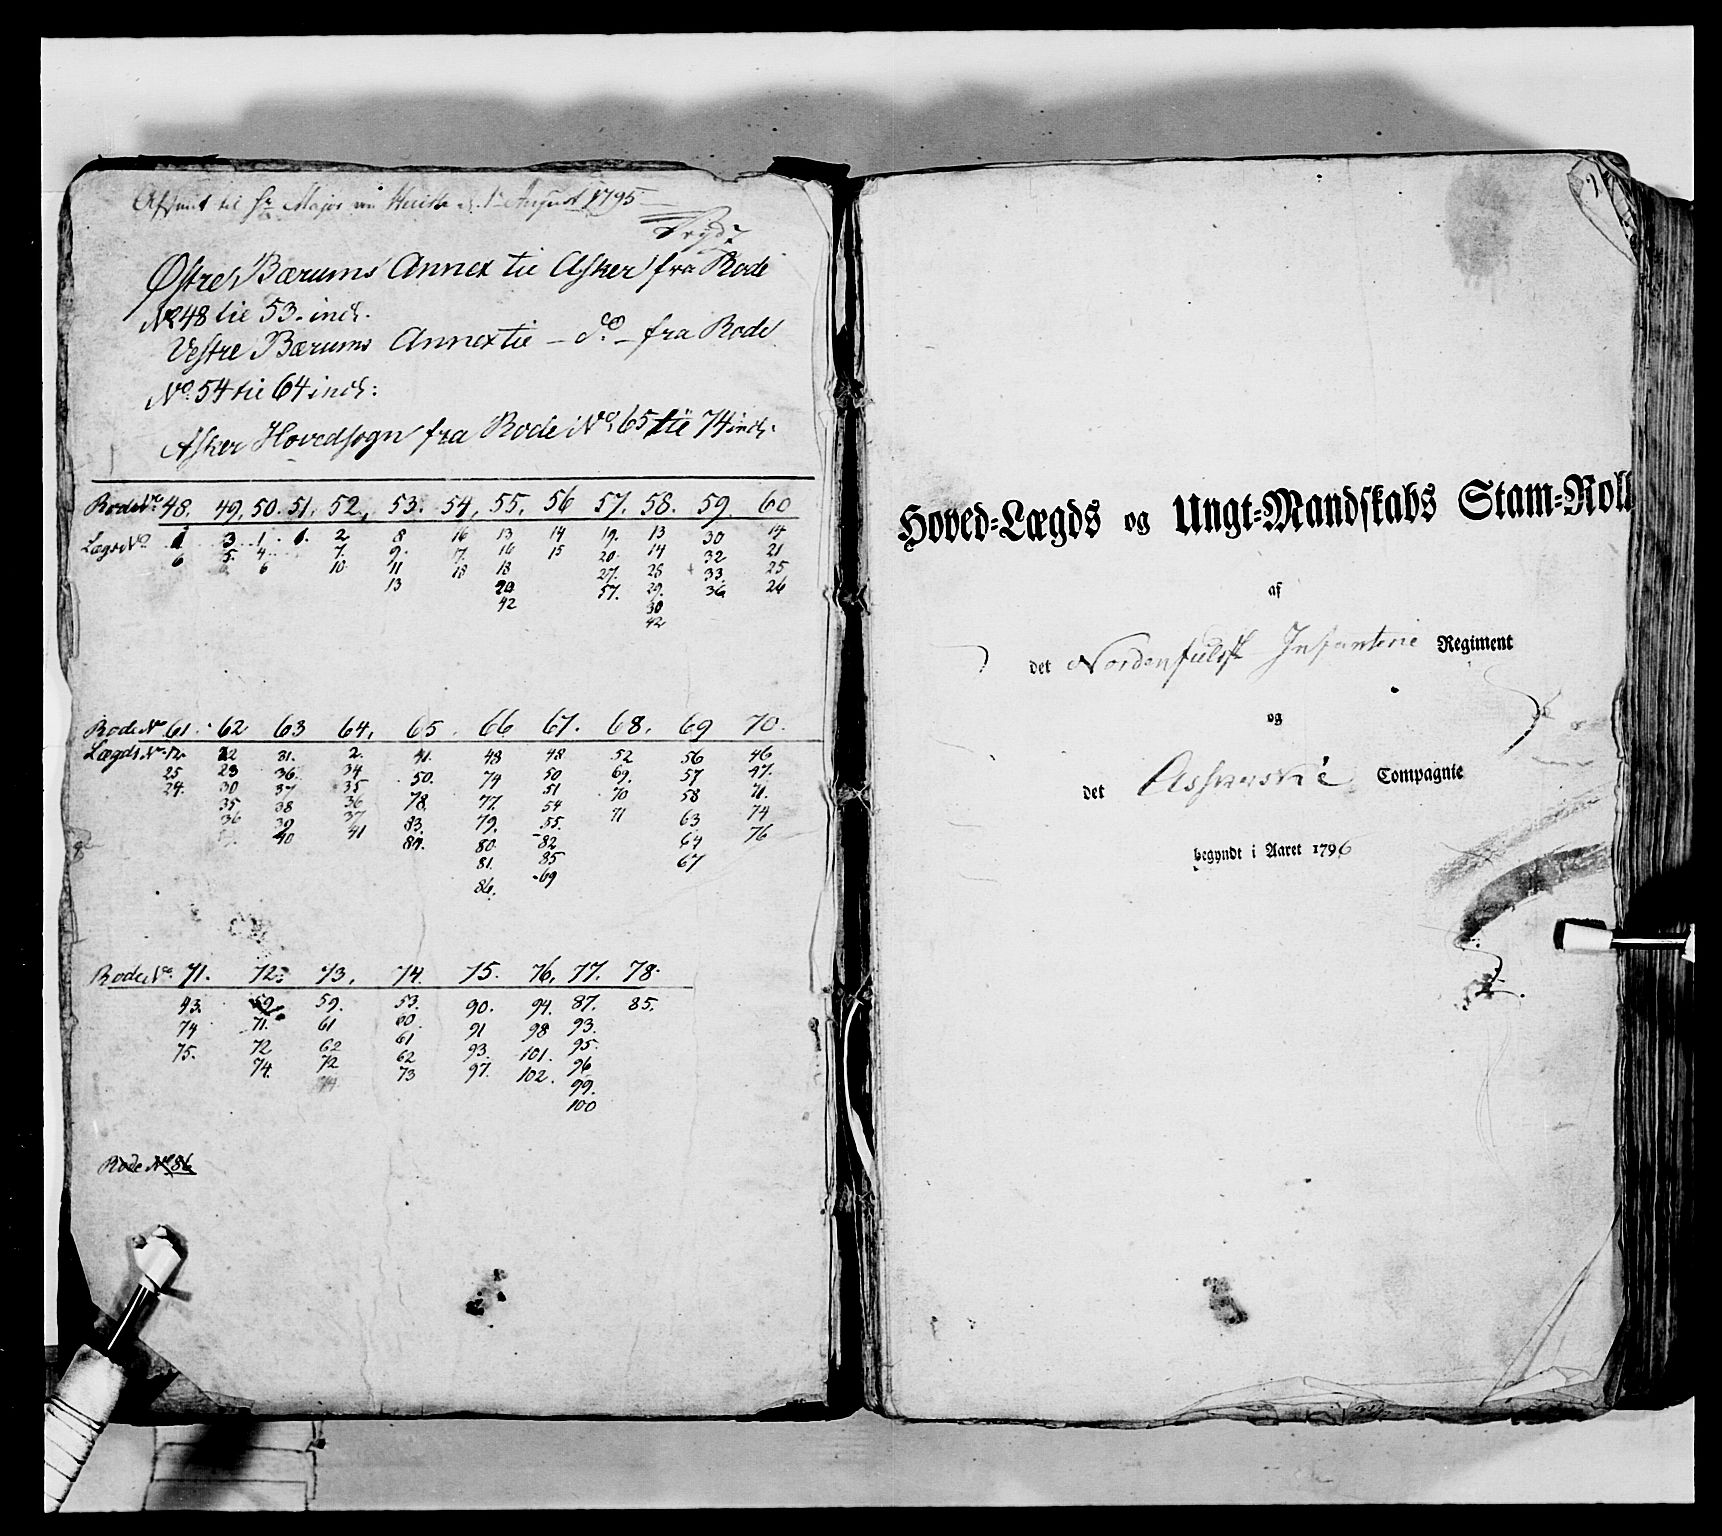 til Hr Major August 1795
Østre Bærums Annex til Asker fra Rode
No 48 til 53. incl.
Vestre Bærums Annex til - do - fra Rode
No. 54 til 64 incl:
Asker Hovedsogn fra Rode No. 65 til 74 incl.
Rode No. 48. 49. 50. 51. 52. 53. 54. 55. 56 57. 58. 59. 60
Lægs No. 1 3 1 1 2 8 16 13 14 19. 13 30 14
6 5. 4 7. 9. 17. 16 15 20. 14 32 21
6 10. 11 18 18 27. 28 33. 25
13 20 57. 29. 36 26
42 30
42
Rode No. 61. 62 63 64. 65. 66 67. 68. 69 70.
Lægds No. 12. 22 31. 2. 41. 48 48 52 56 46
25 23 36. 34 50. 74 50 69. 57. 47.
24. 30 37 35 78. 77. 51 70 58 71.
35 38 36 83. 79. 54 71 63 74
36 39 37 84. 80 55. 64 76
40 41 81. 82 67
86. 85
69
Rode No. 71. 72. 73. 74. 75. 76. 77. 78.
43. 59 59. 53. 90. 94. 87. 85.
74 71. 61 60. 91 98 93.
75. 72 62 61 93. 101. 95.
74. 72 62 97. 102. 96
74 73 99.
100
Rode No. 86
Hoved=Lægds og Ungt=Mandskabs Stam=Roll
af
det Nordenfieldsk Infanterie Regiment
og
det Askerske Compagnie
begyndt i Aaret 1796